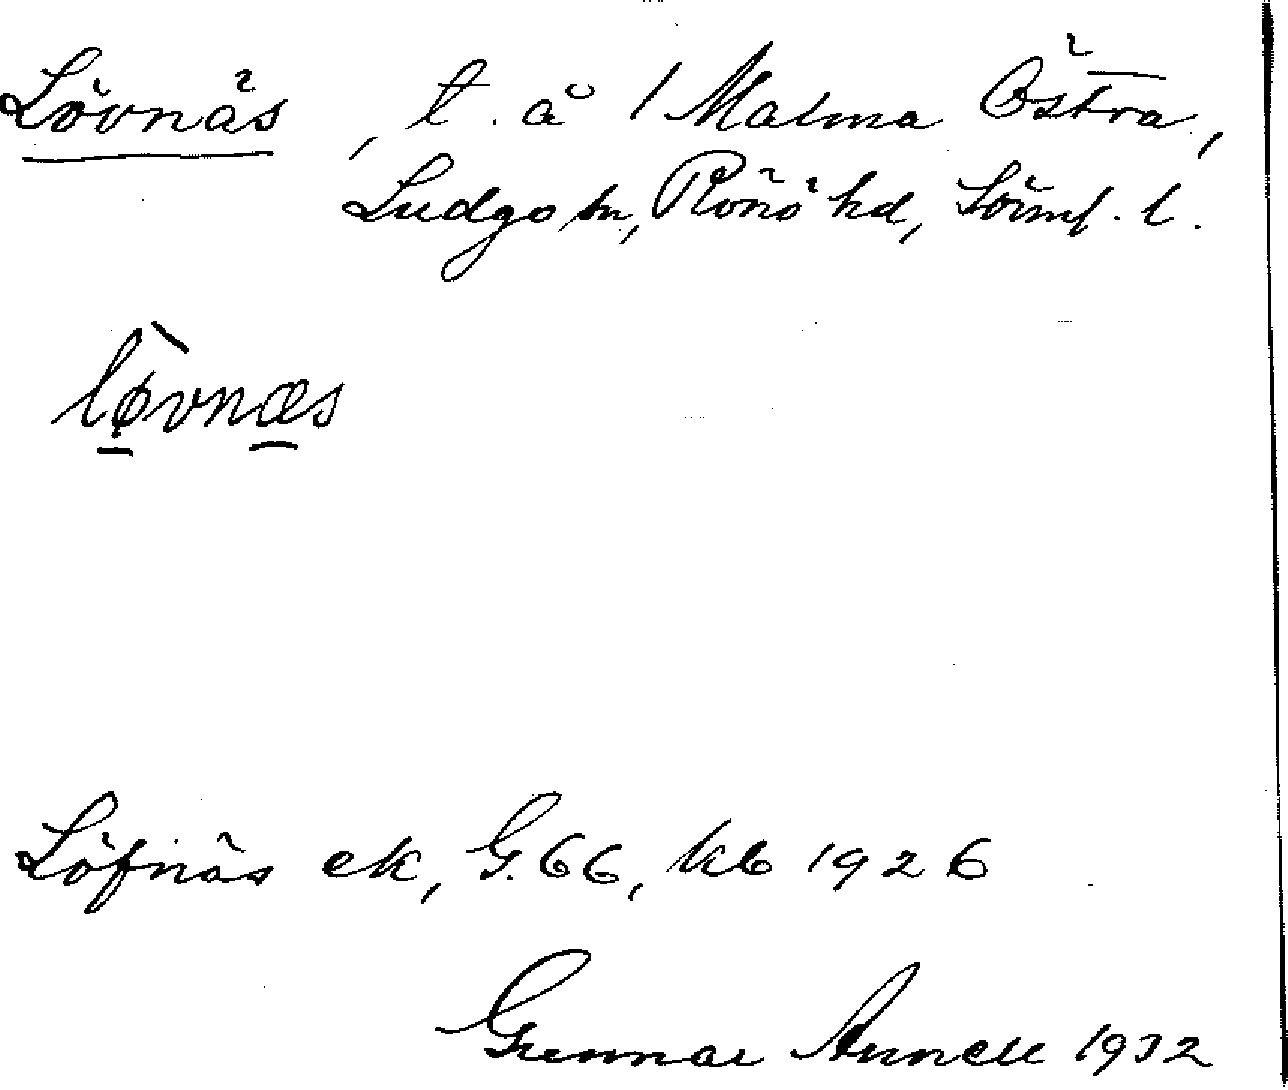 Lövnäs, t. å 1 Malma Östra,
Ludgo sn, Rönö hd, Söml. l.
lø̀vnæs
Löfnäs ek, G. 66, kb 1926
Gunnar Annell 1932